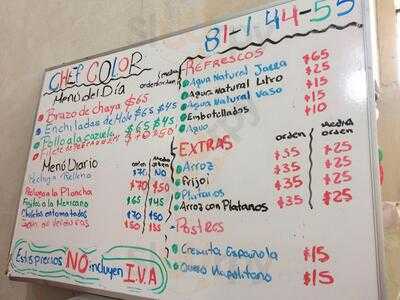 81-1 44-55
CHEF COLOR
Menú del Día
orden
media orden
Brazo de chaya $65
Enchiladas de Mole $65 $45
Pollo a la cazuela $65 $45
Menú Diario
orden
Media orden
Pechuga Rellena $70 NO
a la Plancha $70 $50
Fajitas a la Mexicana $65 $45
Chuletas entomatadas $70 $50
con verduras $50 $35
Estos precios NO incluyen I.V.A
REFRESCOS $65
Agua Natural Jarra $25
Agua Natural Litro $15
Agua Natural Vaso $15
Embotellados $10
Agua
EXTRAS
orden
Media orden
Arroz $35 $25
Frijol $35 $25
Platanos $35 $25
Arroz con Platanos $35 $25
Postres
Cremita Española $15
Queso Napolitano $15